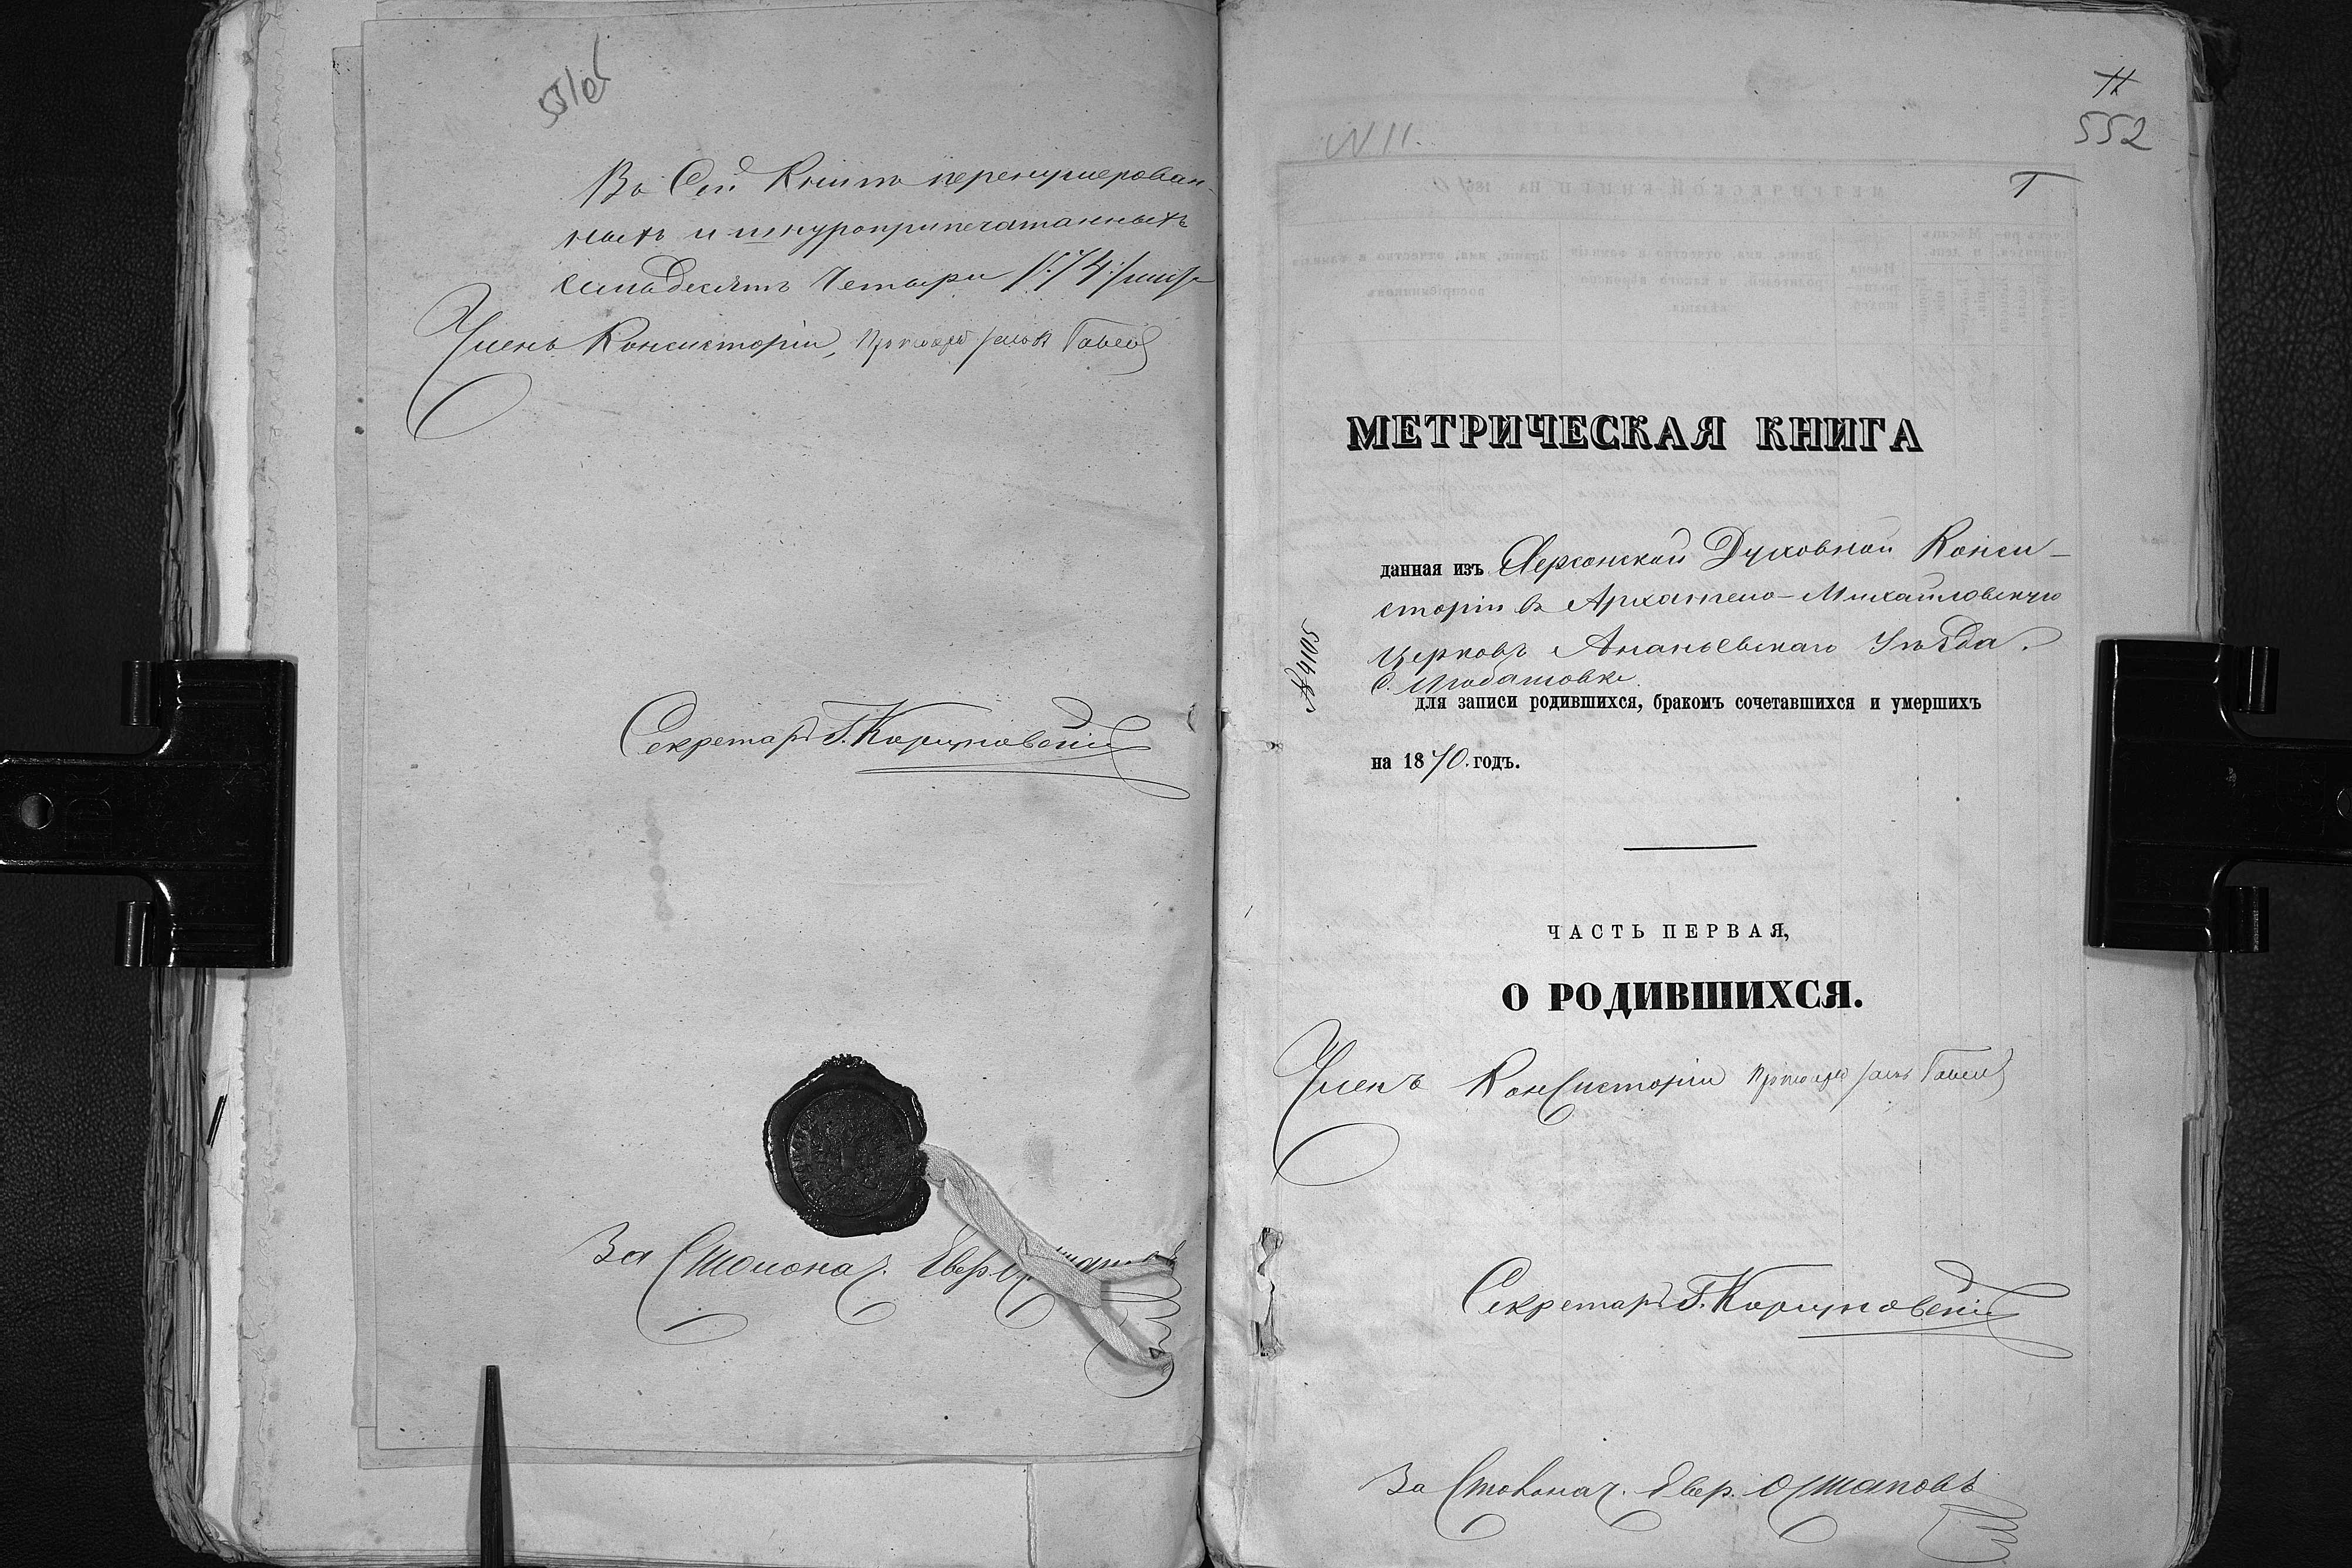 Въ Сей Книге перенумерован-
ныхъ и шнуроприпечатанныхъ
семьдесятъ четыри /:74:/ лист
Членъ Консисторіи, Протоіерей Гавел
Секретарь Г. Коруновскій
За Столонач. Евер.
N 11.
552
МЕТРИЧЕСКАЯ КНИГА
данная изъ Херсонской Духовной Конси-
сторіи въ Архангело-Михайловскую
Церковь Ананьевскаго Уѣзда.
С.
для записи родившихся, бракомъ сочетавшихся и умершихъ
на 1870. годъ.
ЧАСТЬ ПЕРВАЯ,
О РОДИВШИХСЯ.
Членъ Консисторіи Протоіерей
Секретарь Г. Коруновскій
За Столонач. Евер. Остаповъ